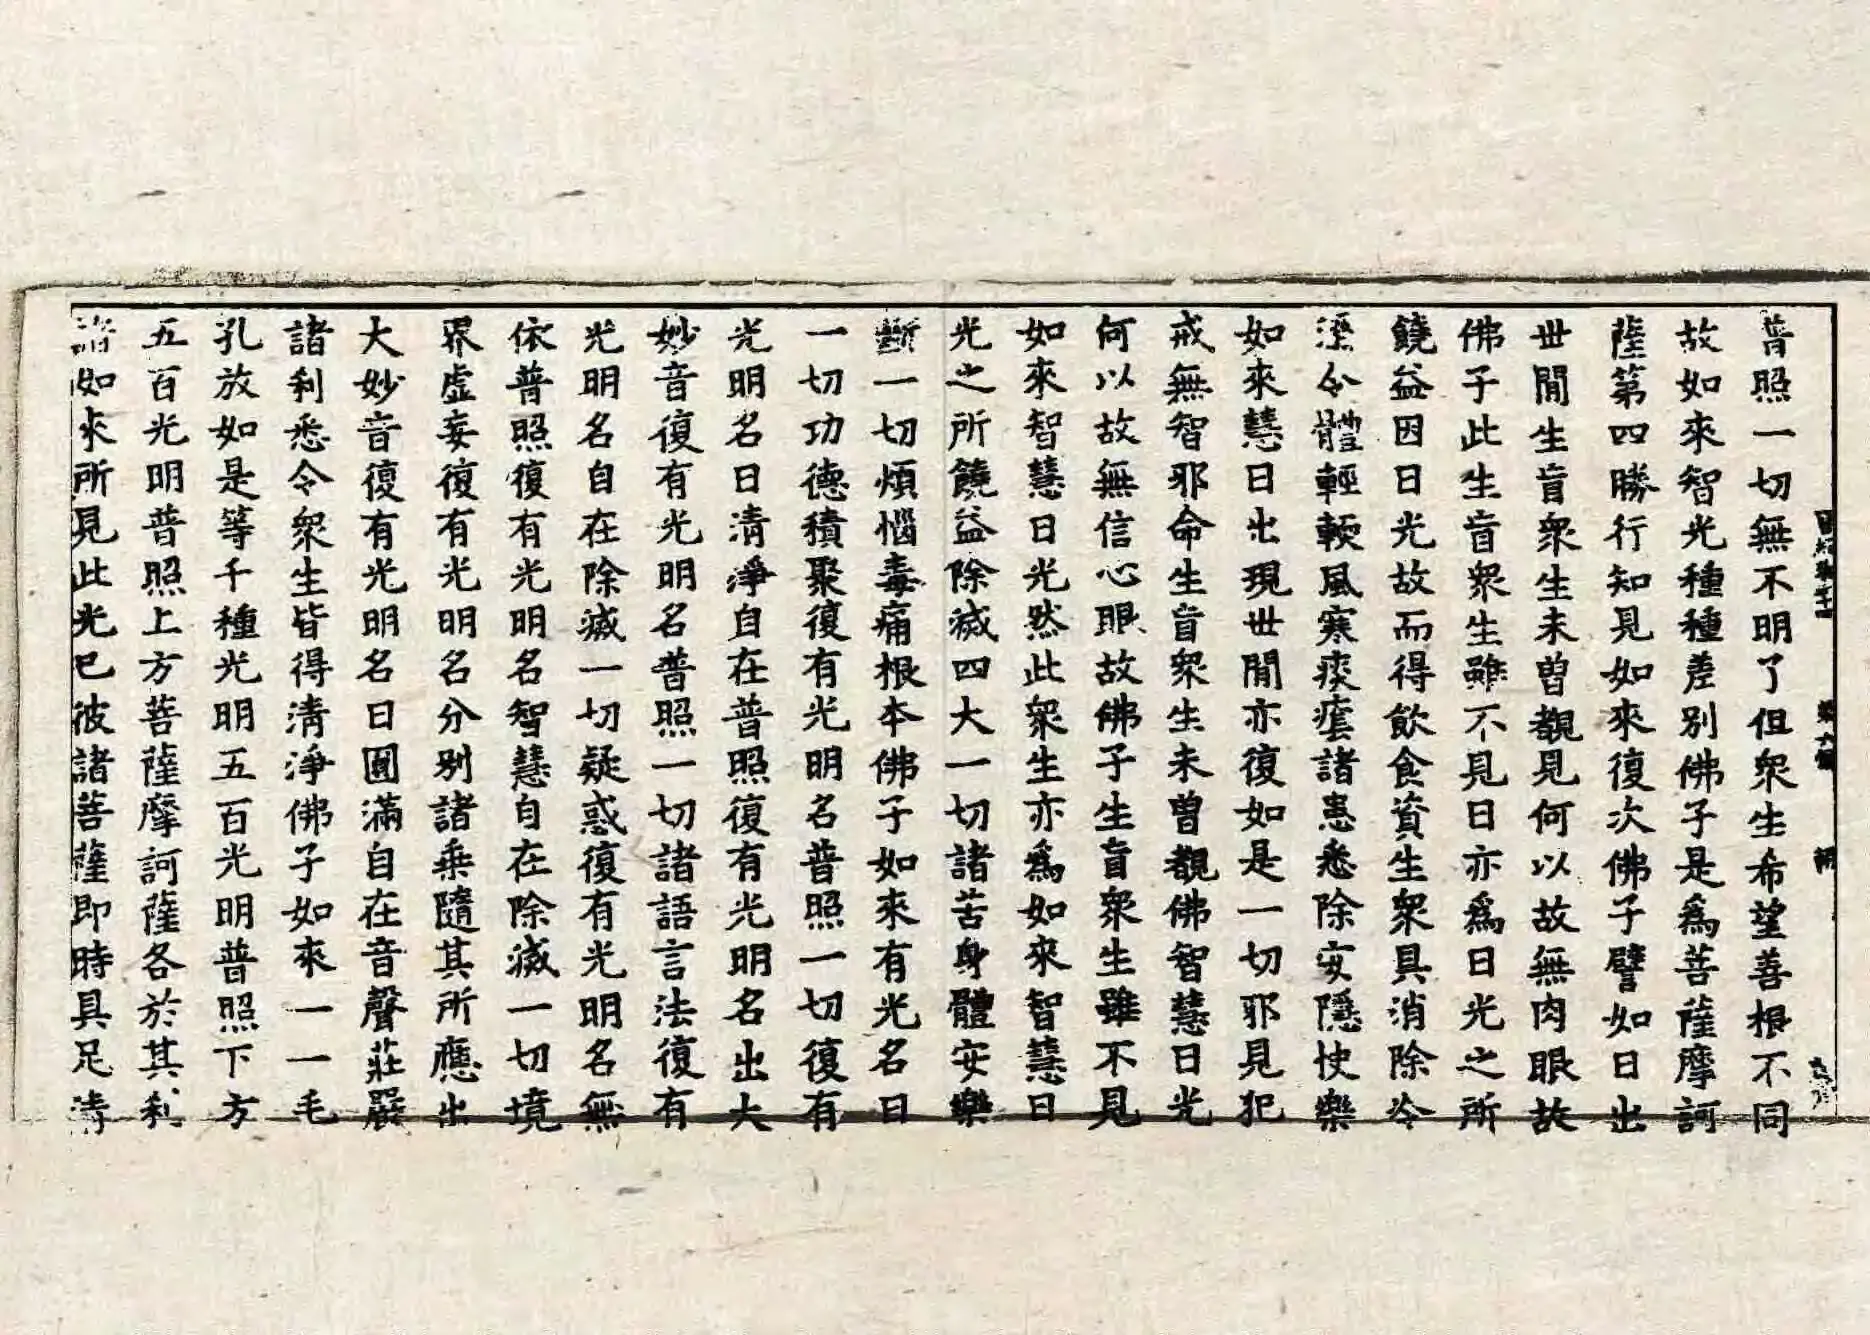 普照一切無不明了但衆生希望善根不同
故如來智光種種差別佛子是爲菩薩摩訶
薩第四勝行知見如來復次佛子譬如日出
世閒生盲衆生未曽覩見何以故無肉眼故
佛子此生盲衆生雖不見日亦爲日光之所
饒益因日光故而得飲食資生衆具消除冷
濕令體輕軟風寒痰癊諸患悉除安隱快樂
如來慧日出現世閒亦復如是一切邪見犯
戒無智邪命生盲衆生未曽覩佛智慧日光
何以故無信心眼故佛子生盲衆生雖不見
如來智慧日光然此衆生亦爲如來智慧日
光之所饒益除滅四大一切諸苦身體安樂
斷一切煩惱毒痛根本佛子如來有光名日
一切功德積聚復有光明名普照一切復有
光明名日清淨自在普照復有光明名出大
妙音復有光明名普照一切諸語言法復有
光明名自在除滅一切疑惑復有光明名無
依普照復有光明名智慧自在除滅一切境
界虛妄復有光明名分別諸乗隨其所應出
大妙音復有光明名日圓滿自在音聲莊嚴
諸刹悉令衆生皆得清淨佛子如來一一毛
孔放如是等千種光明五百光明普照下方
五百光明普照上方菩薩摩訶薩各於其刹
諸如來所見此光已彼諸菩薩即時具足清